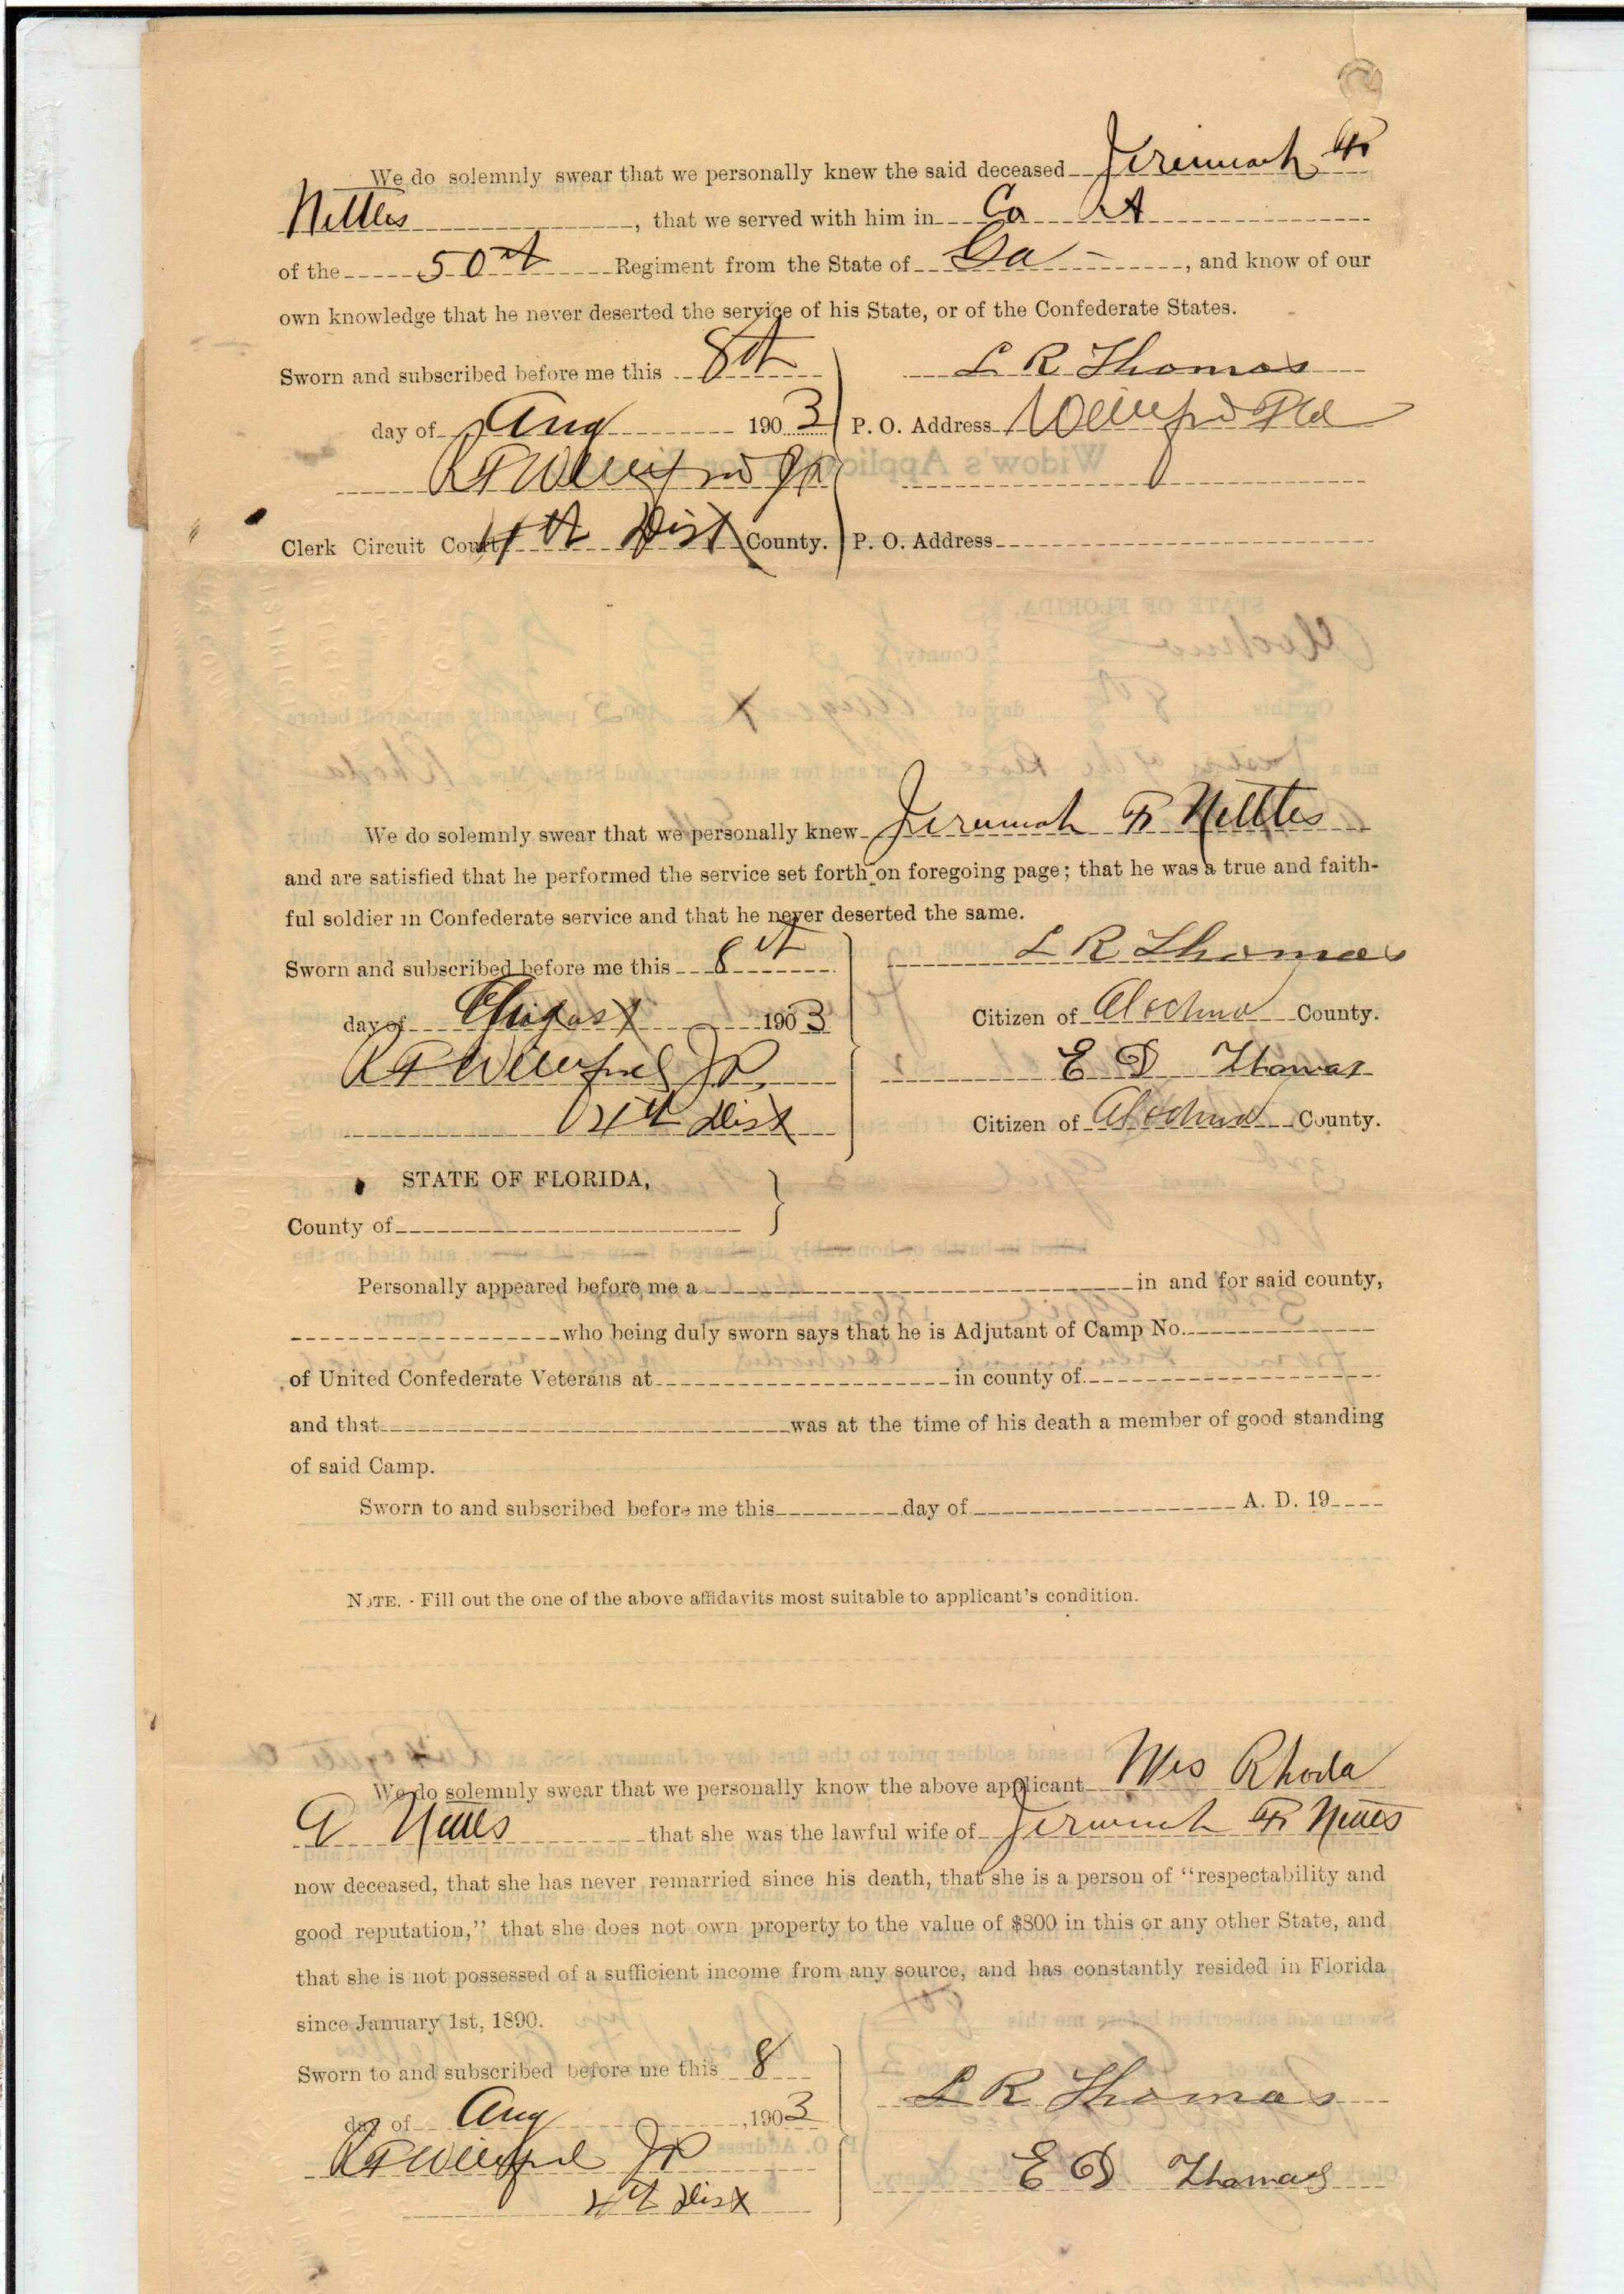 We do solemnly swear that we personally knew the said deceased Jeremiah F
Nettles, that we served with him in Co A
of the 50th Regiment from the State of Ga, and know of our
own knowledge that he never deserted the service of his State, or of the Confederate States.
Sworn and subscribed before me this 8th
L R Thomas
day of Aug 1903
P. O. Address Fla
JP
Clerk Circuit Court 4th Dist County.
P. O. Address
We do solemnly swear that we personally knew Jeremiah F Nettles
and are satisfied that he performed the service set forth on foregoing page; that he was a true and faith-
ful soldier in Confederate service and that he never deserted the same.
Sworn and subscribed before me this 8th
L R Thomas
day of August 1903
Citizen of Alachua County.
JP
E D Thomas
4th Dist
Citizen of Alachua County.
STATE OF FLORIDA,
County of
Personally appeared before me a in and for said county,
who being duly sworn says that he is Adjutant of Camp No.
of United Confederate Veterans at in county of
and that was at the time of his death a member of good standing
of said Camp.
Sworn to and subscribed before me this day of A. D. 19
NOTE. - Fill out the one of the above affidavits most suitable to applicant's condition.
We do solemnly swear that we personally know the above applicant Mrs Rhoda
A Nettles that she was the lawful wife of Jeremiah F Nettles
now deceased, that she has never remarried since his death, that she is a person of "respectability and
good reputation," that she does not own property to the value of $800 in this or any other State, and
that she is not possessed of a sufficient income from any source, and has constantly resided in Florida
since January 1st, 1890.
Sworn to and subscribed before me this 8
day of Aug, 1903
L R Thomas
JP
E D Thomas
4th Dist